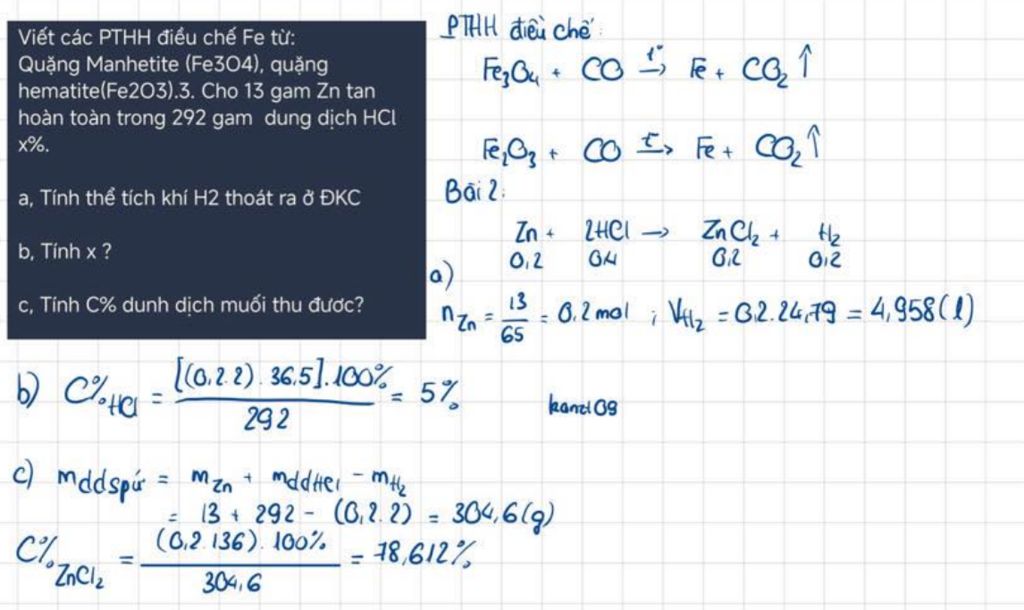 Viết các PTHH điều chế Fe từ:
Quặng Manhetite (Fe3O4), quặng
hematite(Fe2O3).3. Cho 13 gam Zn tan
hoàn toàn trong 292 gam dung dịch HCl
x%.
a, Tính thể tích khí H2 thoát ra ở ĐKC
b, Tính x ?
c, Tính C% dunh dịch muối thu đươc?
PTHH điều chế:
Fe₃O₄ + CO t°→ Fe + CO₂ ↑
Fe₂O₃ + CO t°→ Fe + CO₂ ↑
Bài 2:
Zn + 2HCl → ZnCl₂ + H₂
0,2 0,4 0,2 0,2
a)
n Zn = 13/65 = 0,2 mol ; V H₂ = 0,2.24,79 = 4,958(l)
b) C% HCl = [(0,2.2).36,5].100% / 292 = 5%
kanzi09
c) mddspứ = m Zn + mddHCl - m H₂
= 13 + 292 - (0,2.2) = 304,6(g)
C% ZnCl₂ = (0,2.136).100% / 304,6 = 78,612%